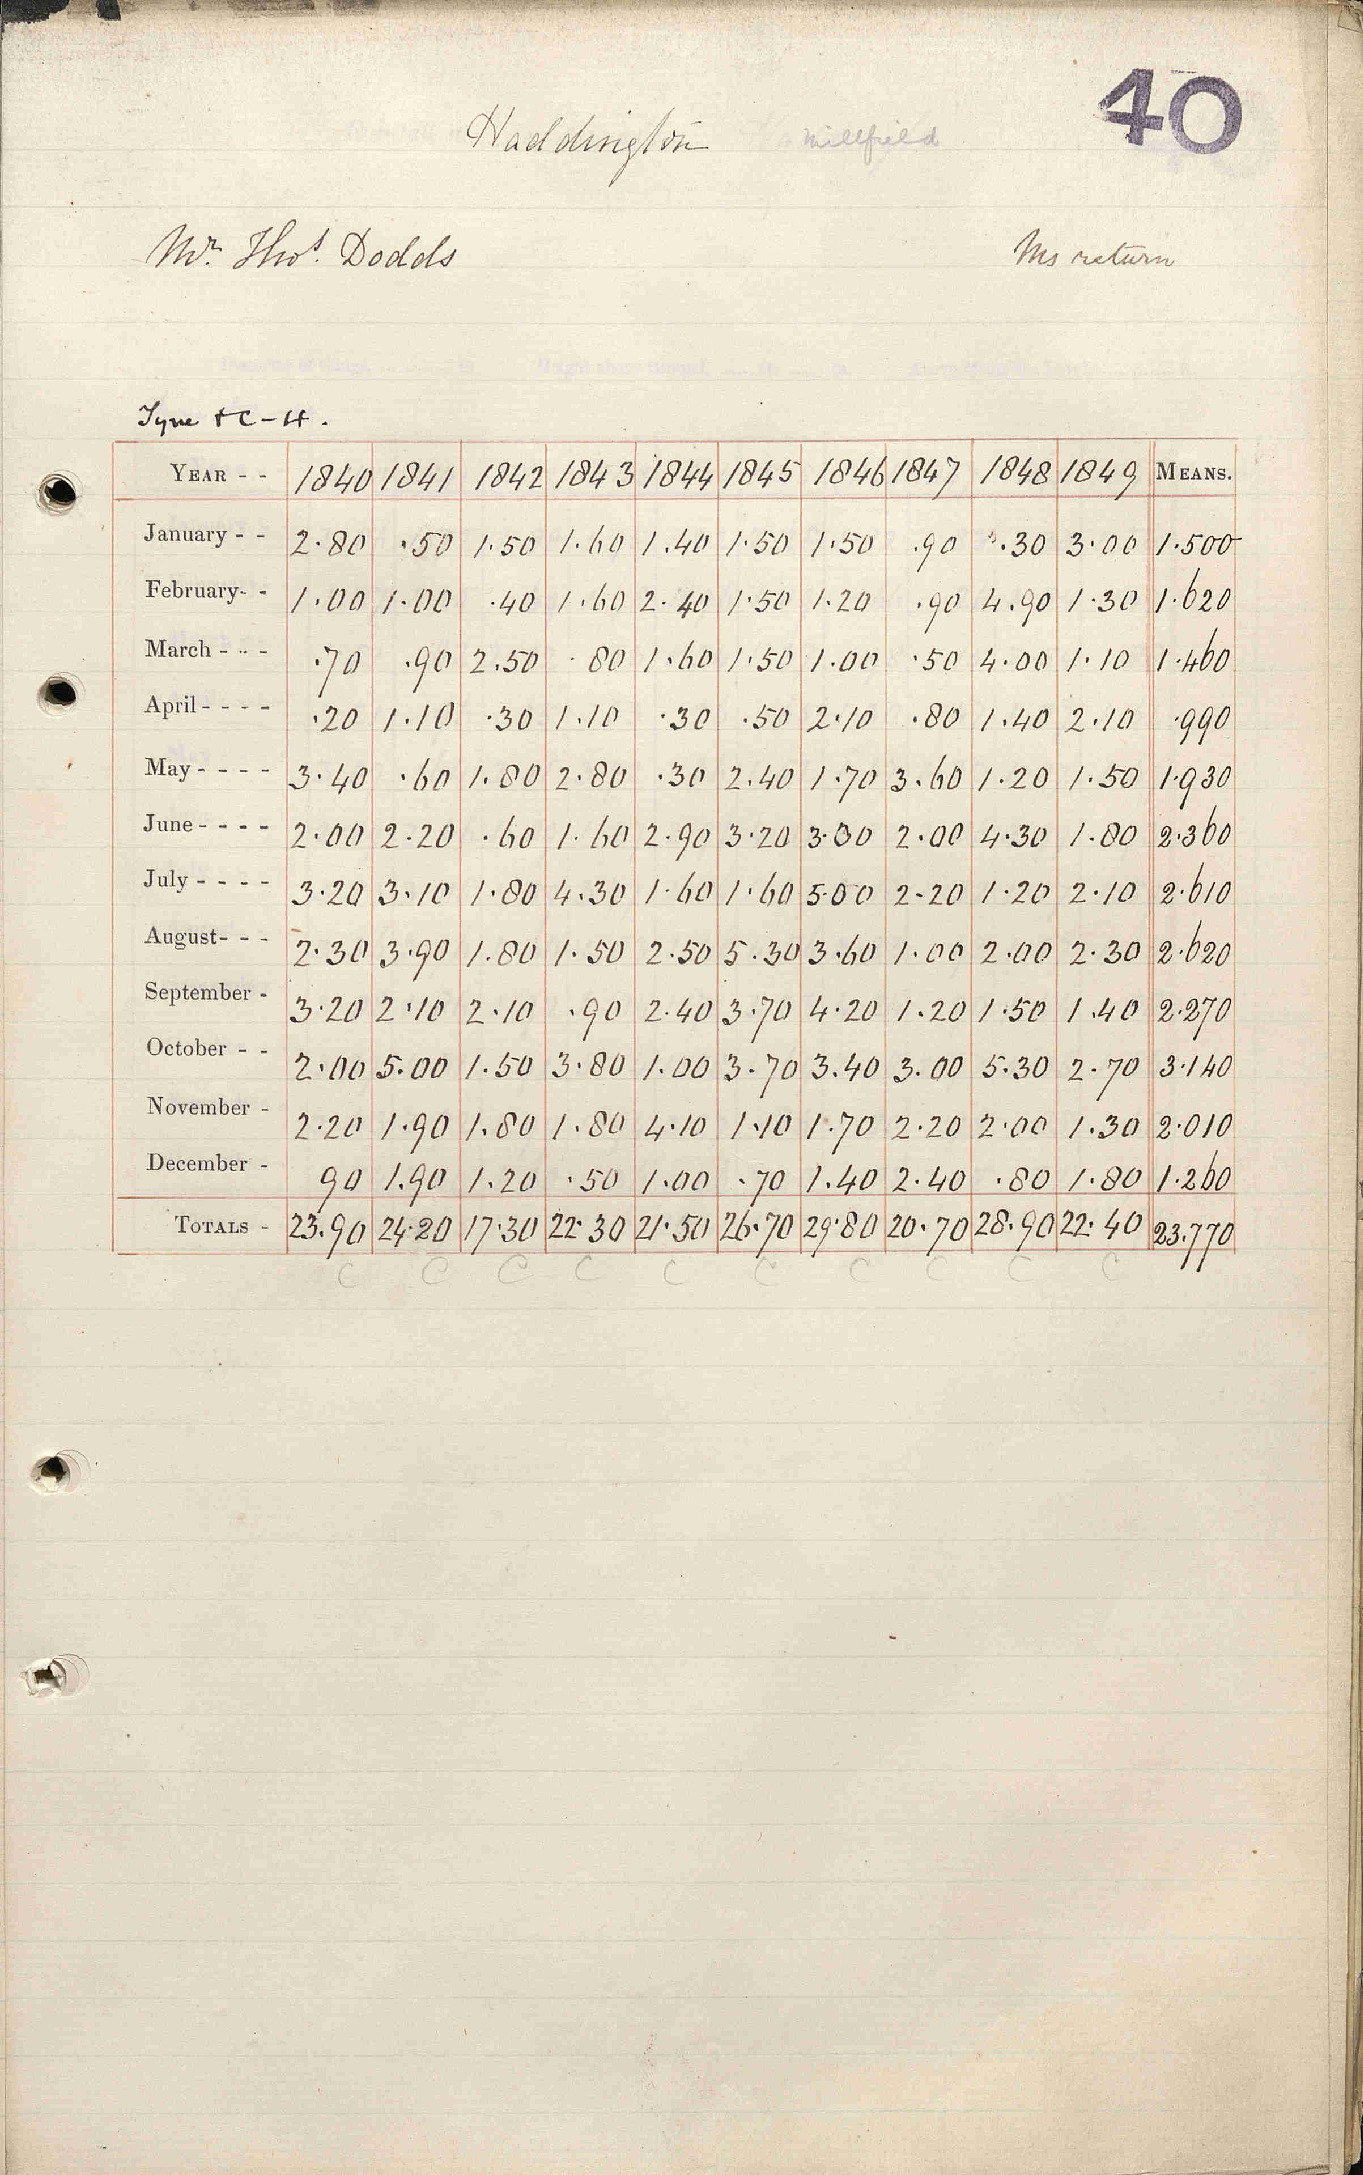 40
Haddington Millfield
Mr. Thos. Dodds Ms return
Tyne & C-H.
YEAR - - 1840 1841 1842 1843 1844 1845 1846 1847 1848 1849 MEANS.
January - - 2.80 .50 1.50 1.60 1.40 1.50 1.50 .90 .30 3.00 1.500
February- - 1.00 1.00 .40 1.60 2.40 1.50 1.20 .90 4.90 1.30 1.620
March - - - .70 .90 2.50 .80 1.60 1.50 1.00 .50 4.00 1.10 1.460
April - - - - .20 1.10 .30 1.10 .30 .50 2.10 .80 1.40 2.10 .990
May - - - - 3.40 .60 1.80 2.80 .30 2.40 1.70 3.60 1.20 1.50 1.930
June - - - - 2.00 2.20 .60 1.60 2.90 3.20 3.00 2.00 4.30 1.80 2.360
July - - - - 3.20 3.10 1.80 4.30 1.60 1.60 5.00 2.20 1.20 2.10 2.610
August- - - 2.30 3.90 1.80 1.50 2.50 5.30 3.60 1.00 2.00 2.30 2.620
September - 3.20 2.10 2.10 .90 2.40 3.70 4.20 1.20 1.50 1.40 2.270
October - - 2.00 5.00 1.50 3.80 1.00 3.70 3.40 3.00 5.30 2.70 3.140
November - 2.20 1.90 1.80 1.80 4.10 1.10 1.70 2.20 2.00 1.30 2.010
December - 90 1.90 1.20 .50 1.00 .70 1.40 2.40 .80 1.80 1.260
TOTALS - 23.90 24.20 17.30 22.30 21.50 26.70 29.80 20.70 28.90 22.40 23.770
C C C C C C C C C C